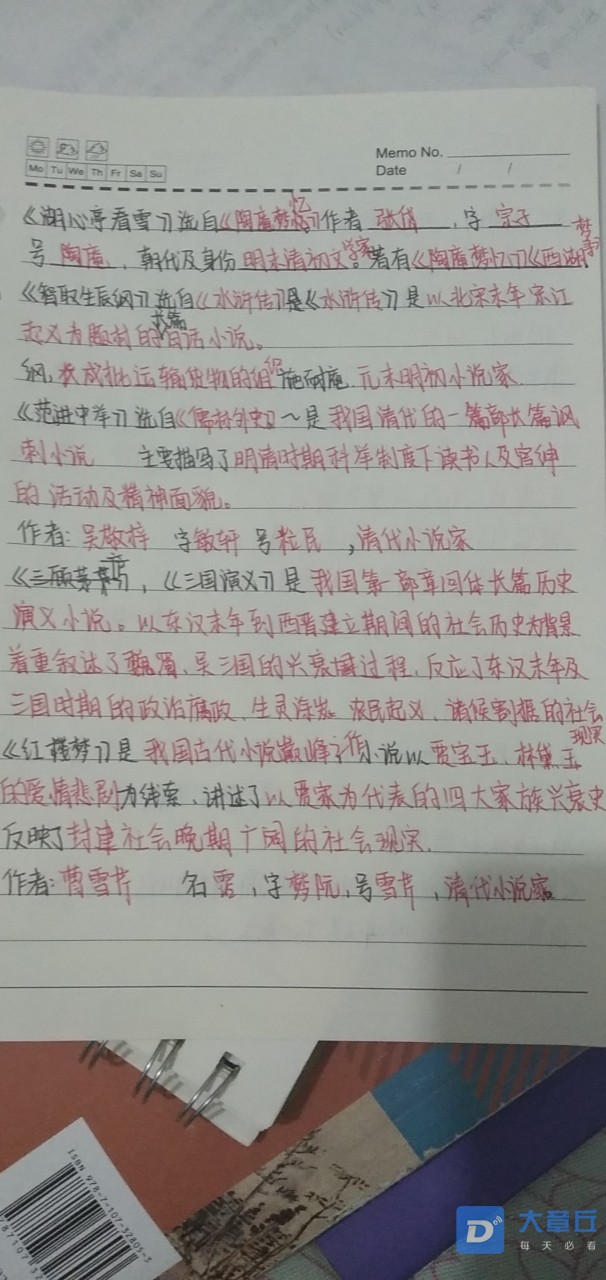 Memo No.
Mo Tu We Th Fr Sa Su
Date / /
《湖心亭看雪》选自《陶庵梦忆》作者 张岱 ,字 宗子
号 陶庵 ,朝代及身份 明末清初文学家。著有《陶庵梦忆》《西湖梦寻》
《智取生辰纲》选自《水浒传》是《水浒传》是以北宋末年宋江
起义为题材的长篇白话小说。
纲,成批运输货物的组织 施耐庵 元末明初小说家
《范进中举》选自《儒林外史》~是我国清代的一篇部长篇讽
刺小说 主要描写了明清时期科举制度下读书人及官绅
的活动及精神面貌。
作者:吴敬梓 字敏轩 号粒民 ,清代小说家
《三顾茅庐》,《三国演义》是我国第一部章回体长篇历史
演义小说。以东汉末年到西晋建立期间的社会历史为背景
着重叙述了魏蜀、吴三国的兴衰过程,反应了东汉末年及
三国时期的政治腐败,生灵涂炭 农民起义,诸侯割据的社会现实
《红楼梦》是我国古代小说巅峰之作小说以贾宝玉、林黛玉
的爱情悲剧为线索,讲述了以贾家为代表的四大家族兴衰史
反映了封建社会晚期广阔的社会现实.
作者:曹雪芹 名霑,字梦阮,号雪芹,清代小说家
ISBN 978-7-107-32805-3
大章丘
每天必看